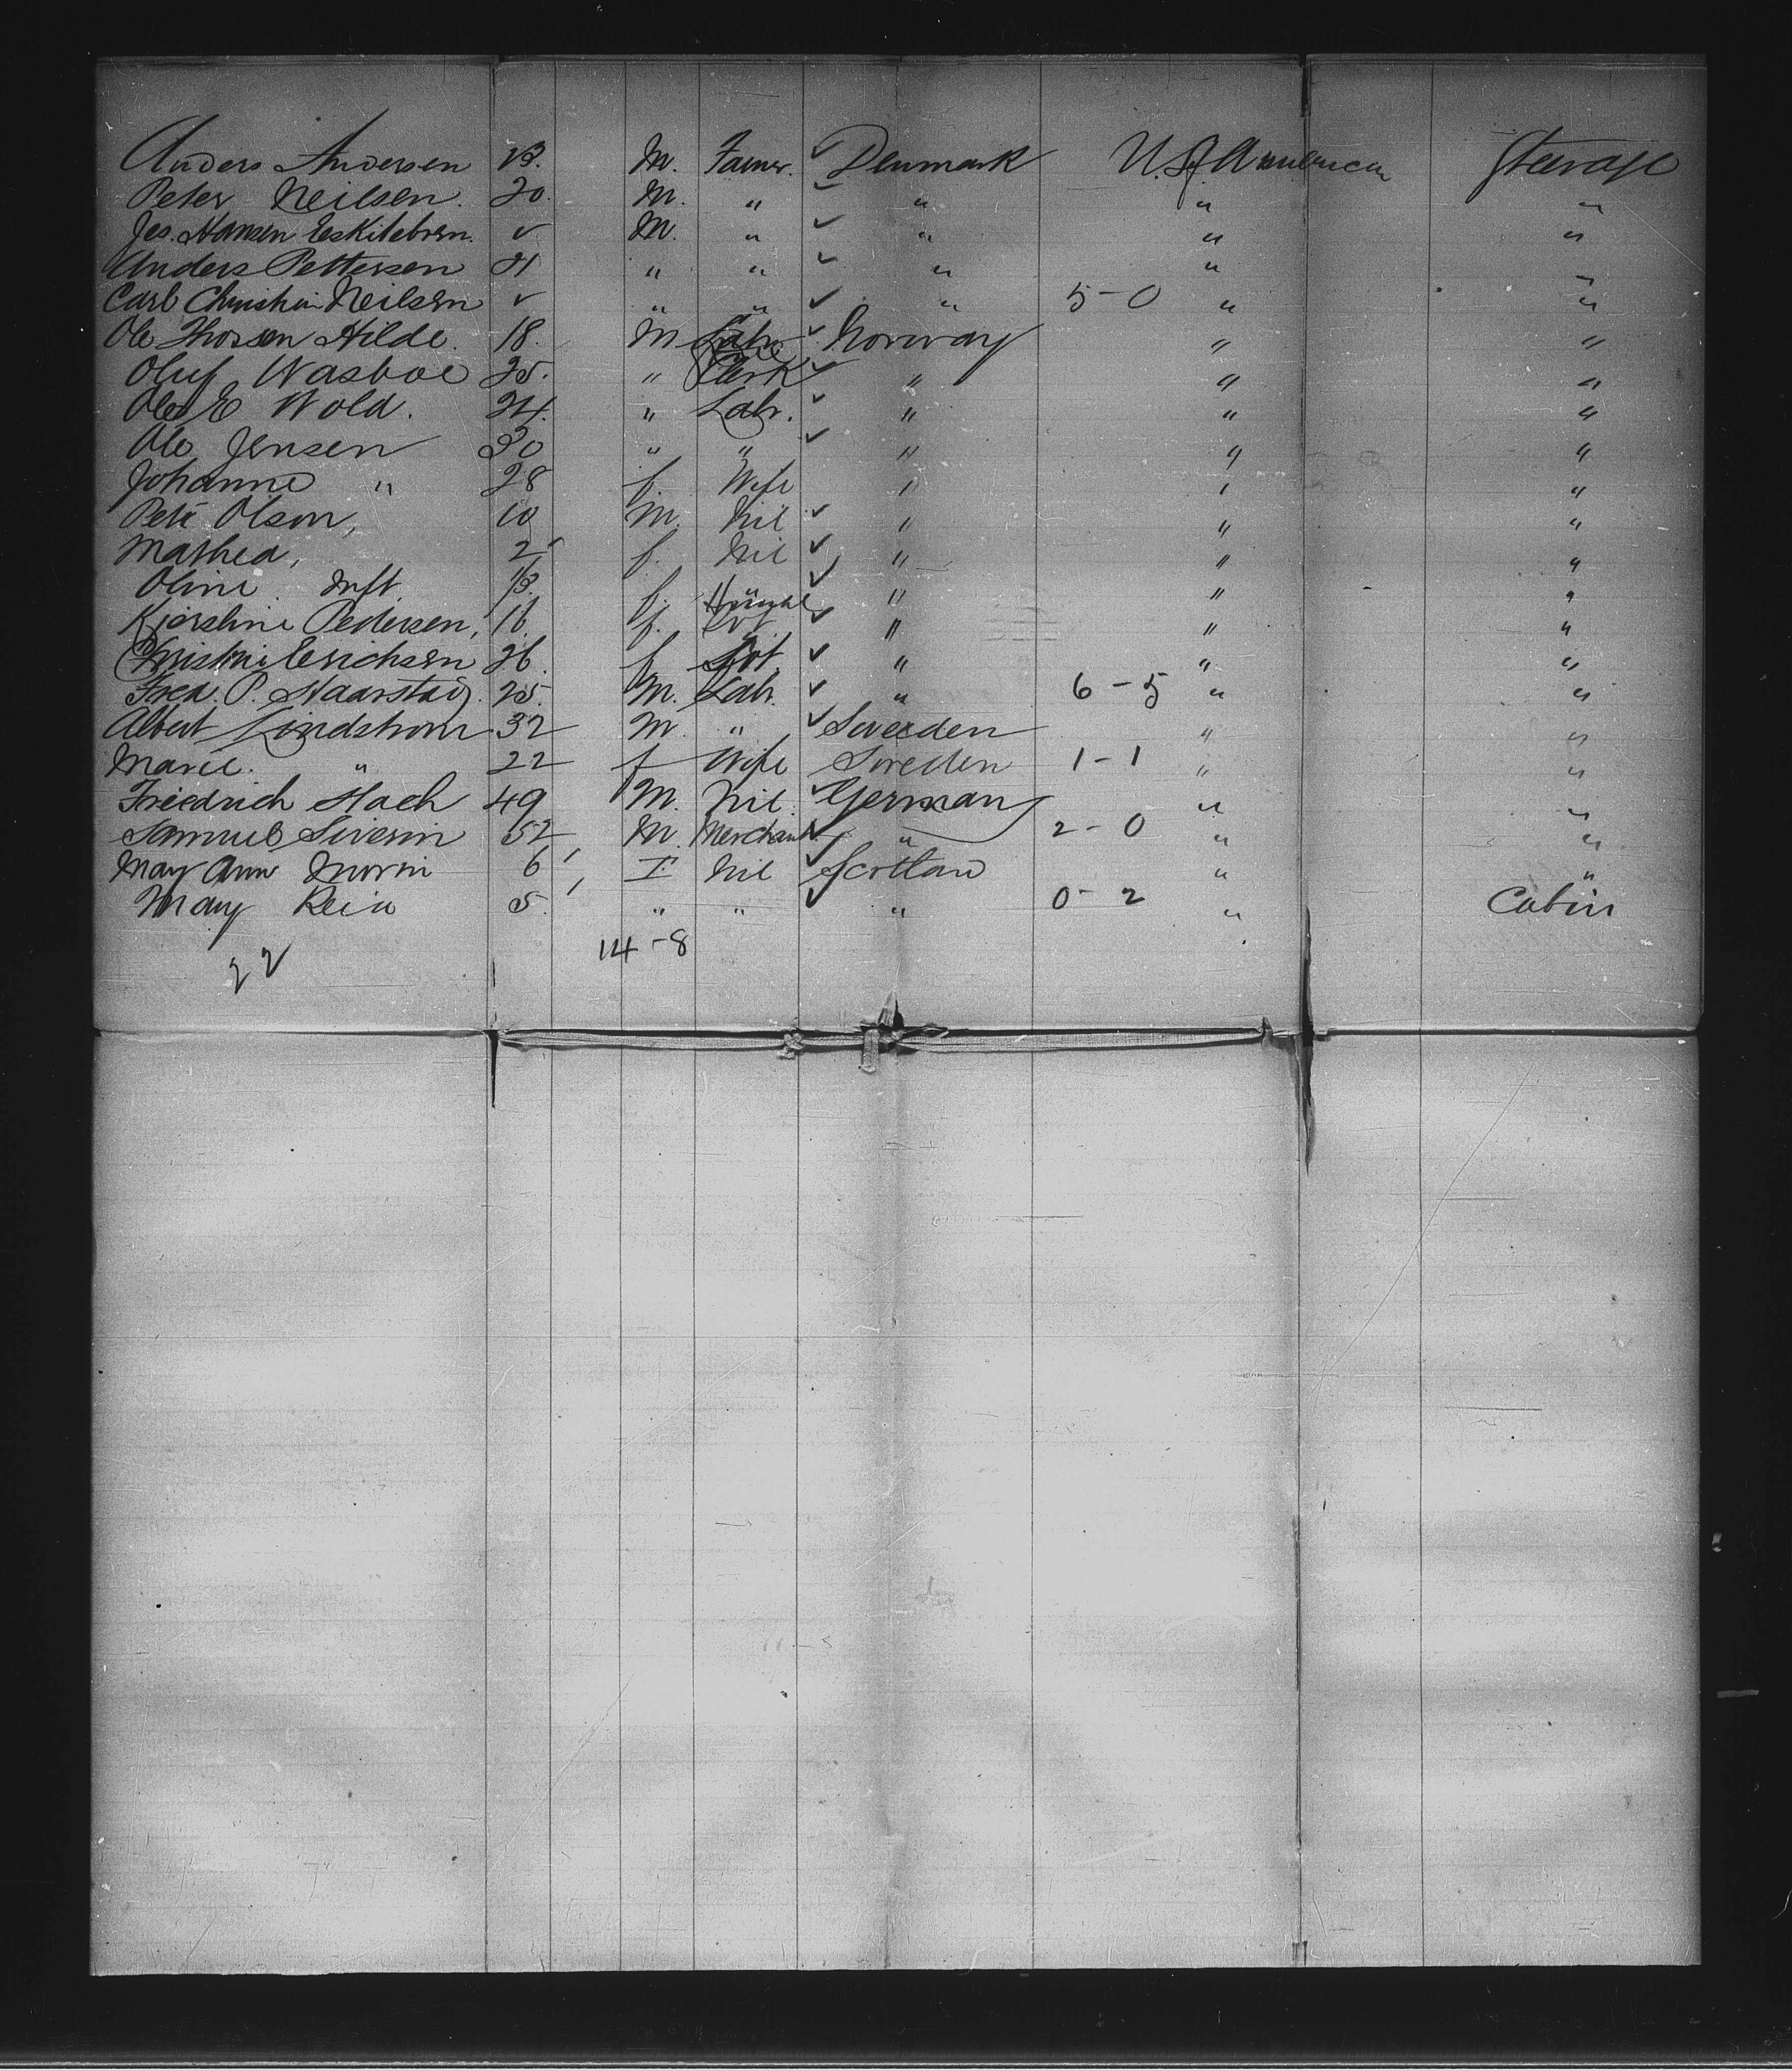 Anders Andersen 23. M. Farmer. ✓ Denmark U.S. America Steerage
Peter Neilsen. 20. M. " ✓ " " "
Jes. Hansen Eskildsen. ✓ M. " ✓ " " "
Anders Pettersen 21 " " ✓ " " "
Carl Christian Neilsen ✓ " " ✓ " 5-0 " "
Ole Thorsen Hilde. 18. M Labr ✓ Norway " "
Oluf Wasboe 25. " Clerk ✓ " " "
Ole E Wold. 24. " Labr. ✓ " " "
Ole Jensen 30 " " ✓ " " "
Johanne " 28 f. Wife " " "
Pete Olson, 10 M. Nil ✓ " " "
Mathea, 2 f. Nil ✓ " " "
Oline Inft. f. " ✓ " " "
Kjerstine Pedersen, 16 f. ✓ " " "
Christine Erichsen 26. f ✓ " " "
Fred. P. Haarstad. 25. M. Labr. ✓ " 6-5 " "
Albert Lindstrom 32 M " ✓ Sweden " "
Marie. " 22 f Wife Sweden 1-1 " "
Friedrich Hach 49 M. Nil ✓ German " "
Samuel Siverin 52 M. Merchant ✓ " 2-0 " "
May Ann Morin 6 F. Nil ✓ Scotland " "
May Reid 5. " " ✓ " 0-2 " Cabin
14-8
22